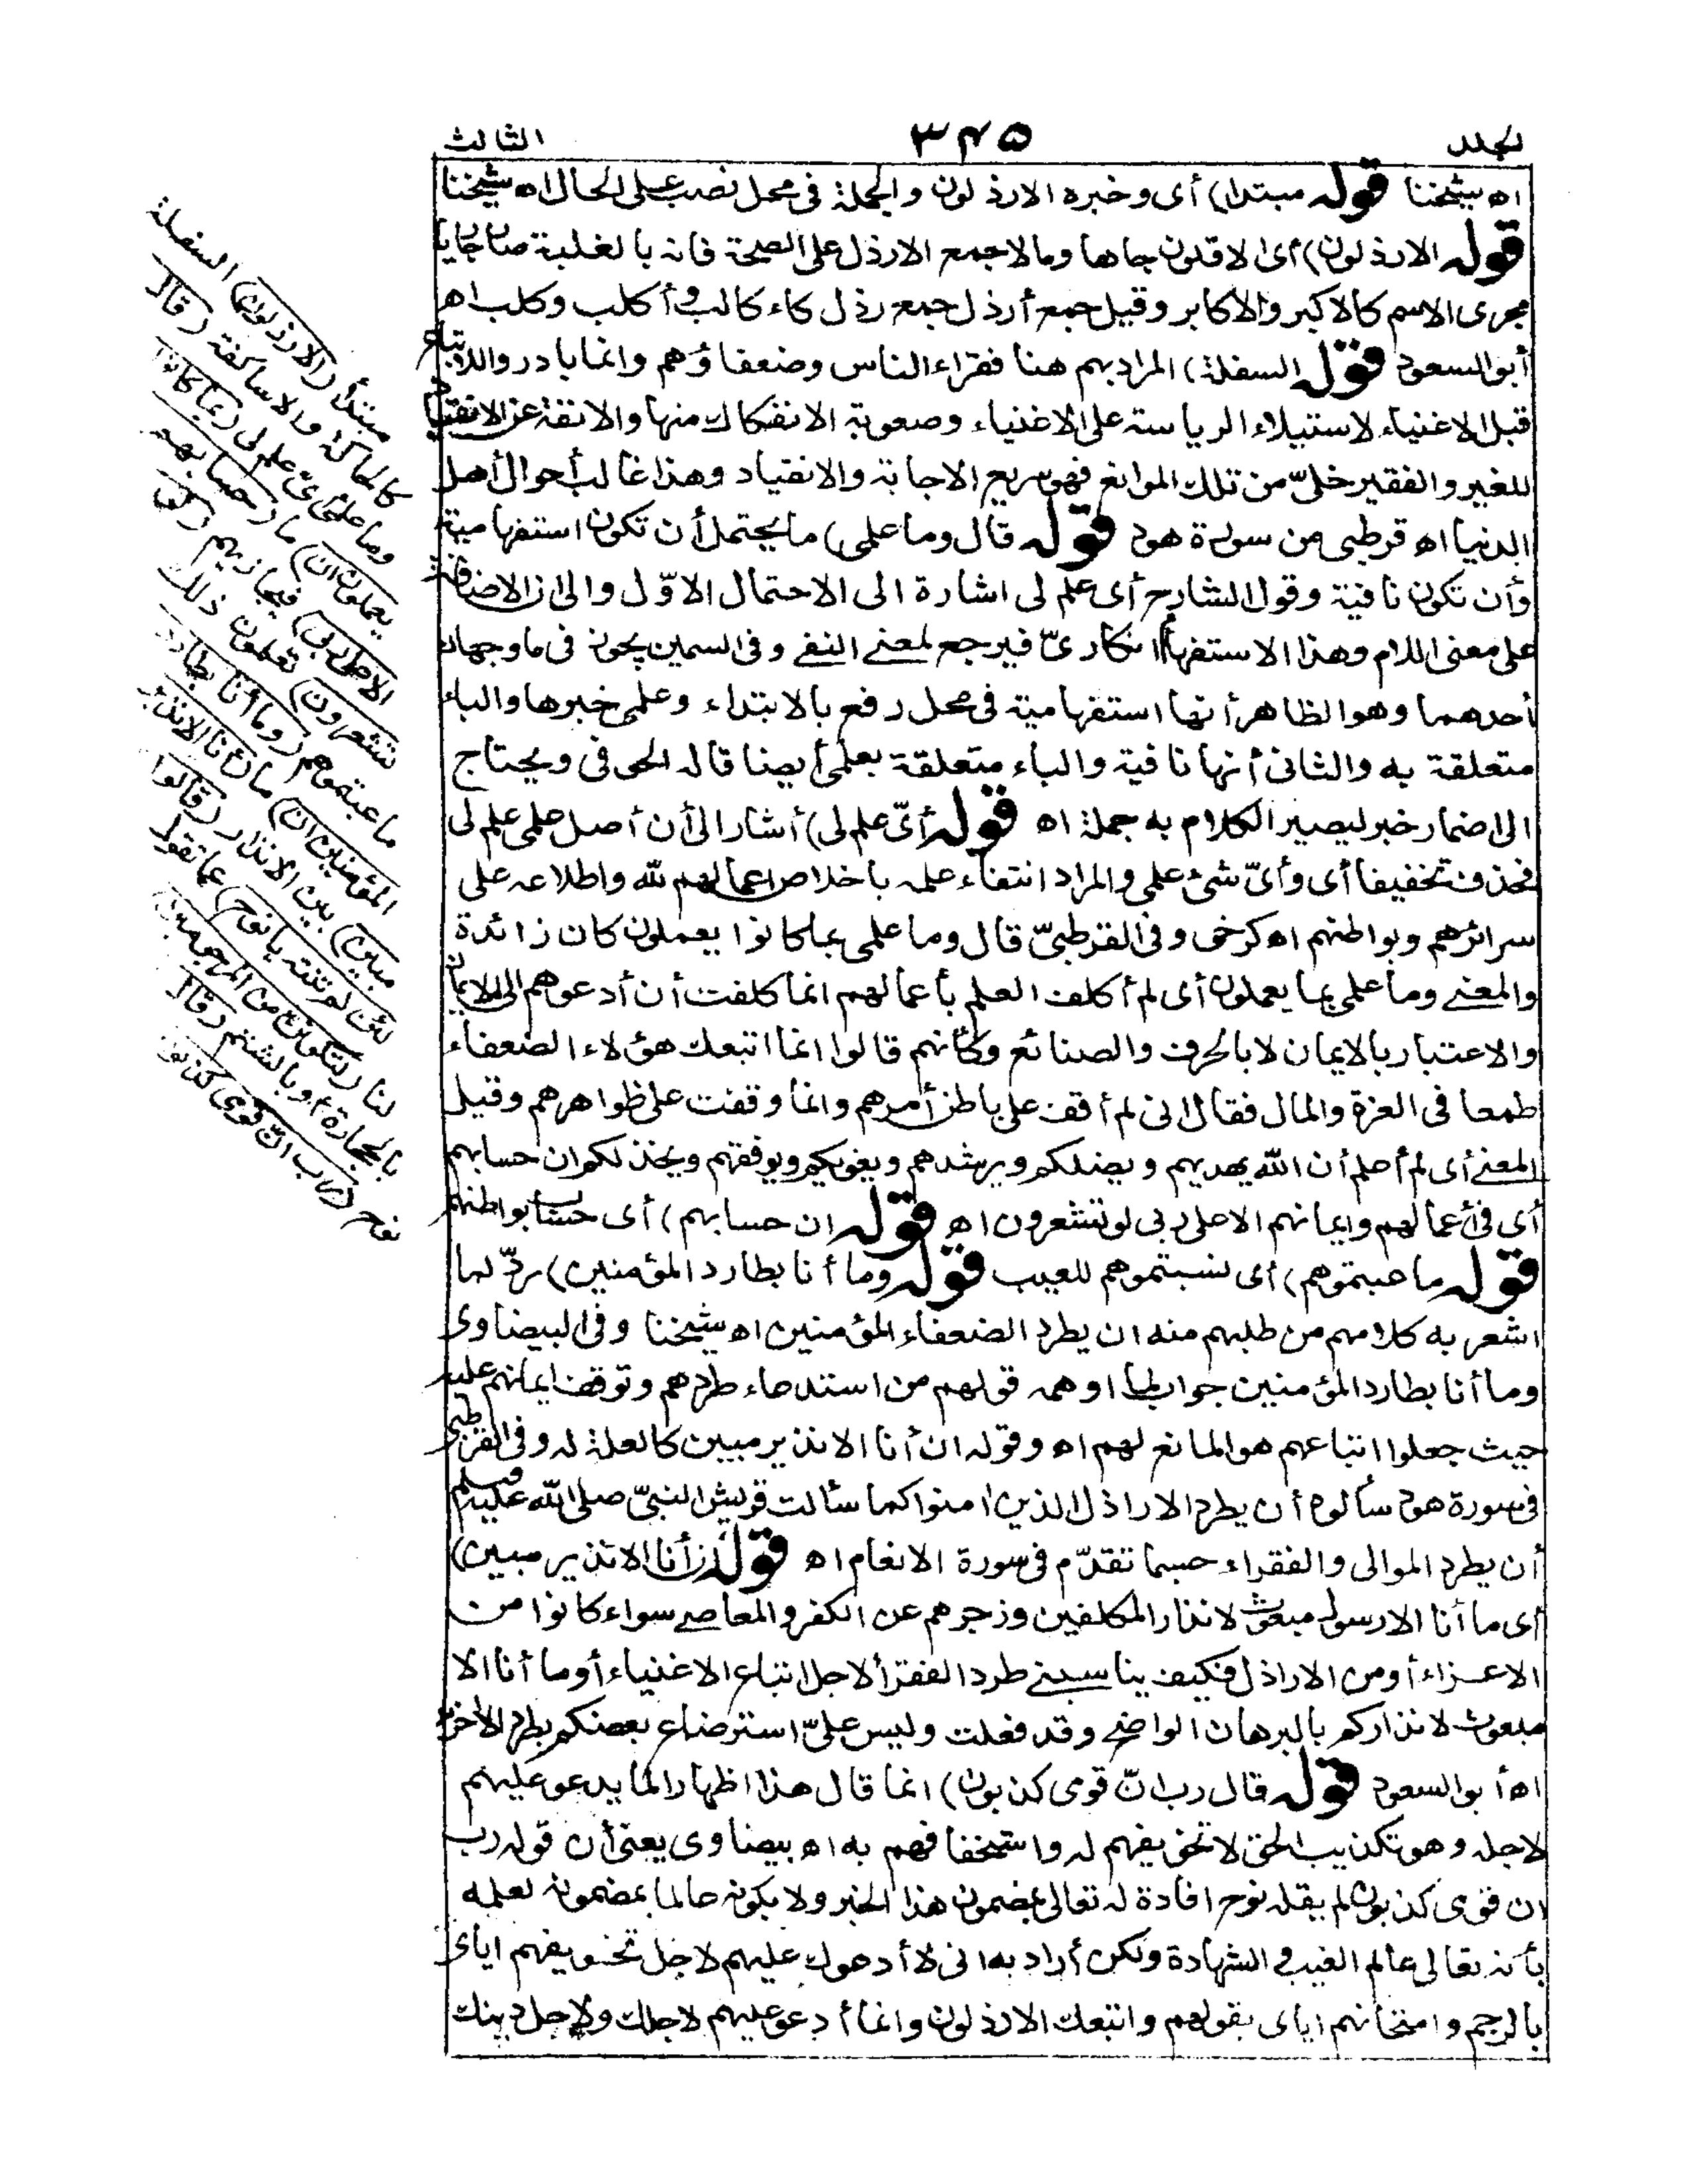 الجلد ٣٤٥ الثالث
اه شيخنا قوله مبتدا) أى وخبره الارذلون والجملة فى محل نصب على الحال اه شيخنا
قوله الارذلون) أى الاقلون جاها ومالا جمع الارذل على الصحة فانه بالغلبة صار جاريا
مجرى الاسم كالاكبر والاكابر وقيل جمع أرذل جمع رذل كاء كالب وأكلب وكلب اهر
أبو السعود قوله السفلة) المراد بهم هنا فقراء الناس وضعفاؤهم وانما بادروا للاتباع
قبل الاغنياء لاستيلاء الرياسة على الاغنياء وصعوبة الانفكاك منها والانفة عن الانقياد
للغير والفقير خلىّ من تلك الموانع فهو سريع الاجابة والانقياد وهذا غالب أحوال أهل
الدنيا اه قرطبى من سورة هود قوله قال وما علمى) ما يحتمل أن تكون استفهامية
وأن تكون نافية وقول الشارح أى علم لى اشارة الى الاحتمال الاوّل والى ان الاضافة
على معنى اللام وهذا الاستفهام انكارىّ فيرجع لمعنى النفى وفى السمين يجوز فى ما وجهان
أحدهما وهو الظاهر أنها استفهامية فى محل رفع بالابتداء وعلمى خبرها والباء
متعلقة به والثانى أنها نافية والباء متعلقة بعلمى أيضا قاله الحوفى ويحتاج
الى اضمار خبر ليصير الكلام به جملة اه قوله أىّ علم لى) أشار الى أن أصل علمى علم لى
فحذف تخفيفا أى وأىّ شىء علمى والمراد انتفاء علمه باخلاص اعمالهم لله واطلاعه على
سرائرهم وبواطنهم اه كرخى وفى القرطبىّ قال وما علمى بما كانوا يعملون كان زائدة
والمعنى وما علمى بما يعملون أى لم أكلف العلم بأعمالهم انما كلفت أن أدعوهم الى الايمان
والاعتبار بالايمان لا بالحرف والصنائع وكأنهم قالوا انما اتبعك هؤلاء الضعفاء
طمعا فى العزة والمال فقال انى لم أقف على باطن أمرهم وانما وقفت على ظواهرهم وقيل
المعنى أى لم أعلم أن الله يهديهم ويضلكم ويرشدهم ويغويكم ويوفقهم ويخذلكم ان حسابهم
أى فى أعمالهم وايمانهم الا على ربى لو تشعرون اه قوله ان حسابهم) أى حساب بواطنهم
قوله ما عبتموهم) أى نسبتموهم للعيب قوله وما أنا بطارد المؤمنين) ردّ لما
اشعر به كلامهم من طلبهم منه ان يطرد الضعفاء المؤمنين اه شيخنا وفى البيضاوى
وما أنا بطارد المؤمنين جواب لما اوهمه قولهم من استدعاء طردهم وتوقف ايمانهم عليه
حيث جعلوا اتباعهم هو المانع لهم اه وقوله ان أنا الا نذير مبين كالعلة له وفى القرطبى
فى سورة هود سألوه أن يطرد الاراذل الذين امنوا كما سألت قريش النبىّ صلى الله عليه وسلم
أن يطرد الموالى والفقراء حسبما تقدّم فى سورة الانعام اه قوله ان أنا الا نذير مبين)
أى ما أنا الا رسول مبعوث لانذار المكلفين وزجرهم عن الكفر والمعاصى سواء كانوا من
الاعزاء أو من الاراذل فكيف يناسبنى طرد الفقراء لاجل اتباع الاغنياء أو ما أنا الا
مبعوث لانذاركم بالبرهان الواضح وقد فعلت وليس علىّ استرضاء بعضكم بطرد الاخرين
اه أبو السعود قوله قال رب انّ قومى كذبون) انما قال هذا اظهارا لما يدعو عليهم
لاجله وهو تكذيب الحق لا تخويفهم له واستخفافهم به اه بيضاوى يعنى أن قوله رب
ان قومى كذبون لم يقله نوح افادة له تعالى بمضمون هذا الخبر ولا بكونه عالما بمضمونه لعلمه
بأنه تعالى عالم الغيب والشهادة ولكن أراد به انى لا أدعوك عليهم لاجل تخويفهم اياى
بالرجم وامتحانهم اياى بقولهم واتبعك الارذلون وانما أدعو عليهم لاجلك ولاجل دينك
مبتدأ (الارذلون) السفلة
كالحاكة والاساكفة (قال
وما علمى) أىّ علم لى (بما كانوا
يعملون ان) ما (حسابهم
الا على ربى) فيجازيهم (لو
تشعرون) تعلمون ذلك
ما عبتموهم (وما أنا بطارد
المؤمنين ان) ما (أنا الا نذير
مبين) بين الانذار (قالوا
لئن لم تنته يا نوح) عما تقول
لنا (لتكونن من المرجومين)
بالحجارة أو بالشتم (قال)
نوح (رب انّ قومى كذبون